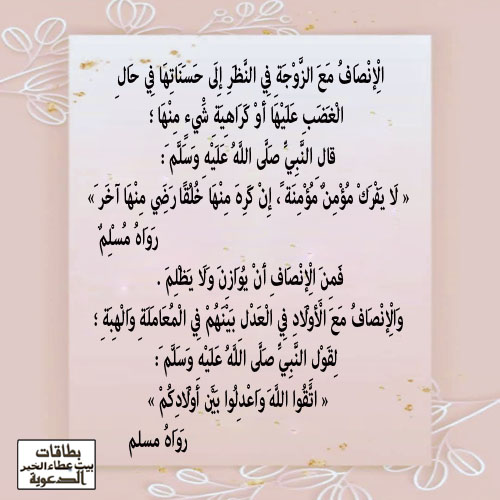 الْإِنْصَافُ مَعَ الزَّوْجَةِ فِي النَّظَرِ إِلَى حَسَنَاتِهَا فِي حَالِ
الْغَضَبِ عَلَيْهَا أَوْ كَرَاهِيَةِ شَيْءٍ مِنْهَا ؛
قال النَّبِيِّ صَلَّى اللَّهُ عَلَيْهِ وَسَلَّمَ :
« لَا يَفْرَكْ مُؤْمِنٌ مُؤْمِنَةً ، إِنْ كَرِهَ مِنْهَا خُلُقًا رَضِيَ مِنْهَا آخَرَ »
رَوَاهُ مُسْلِمٌ
فَمِنَ الْإِنْصَافِ أَنْ يُوَازِنَ وَلَا يَظْلِمَ .
وَالْإِنْصَافُ مَعَ الْأَوْلَادِ فِي الْعَدْلِ بَيْنَهُمْ فِي الْمُعَامَلَةِ وَالْهِبَةِ ؛
لِقَوْلِ النَّبِيِّ صَلَّى اللَّهُ عَلَيْهِ وَسَلَّمَ :
« اتَّقُوا اللَّهَ وَاعْدِلُوا بَيْنَ أَوْلَادِكُمْ »
رَوَاهُ مسلم
بطاقات
بيت عطاء الخير
الدعوية